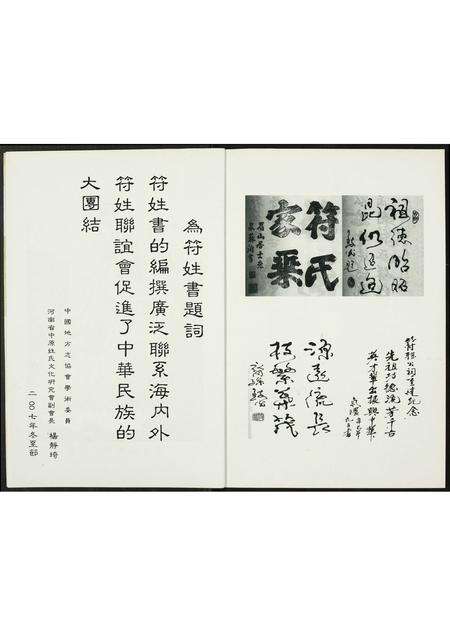 祖德昭昭
昆仍通
符氏
家乘
源遠流長
枝繁葉茂
符樑公祠重建紀念
先祖功德流芳千古
英才輩出振興中華
為符姓書題詞
符姓書的編撰廣泛聯系海內外
符姓聯誼會促進了中華民族的
大團結
中國地方志協會學術委員
河南省中原姓氏文化研究會副會長 楊靜琦
二〇〇七年冬至節